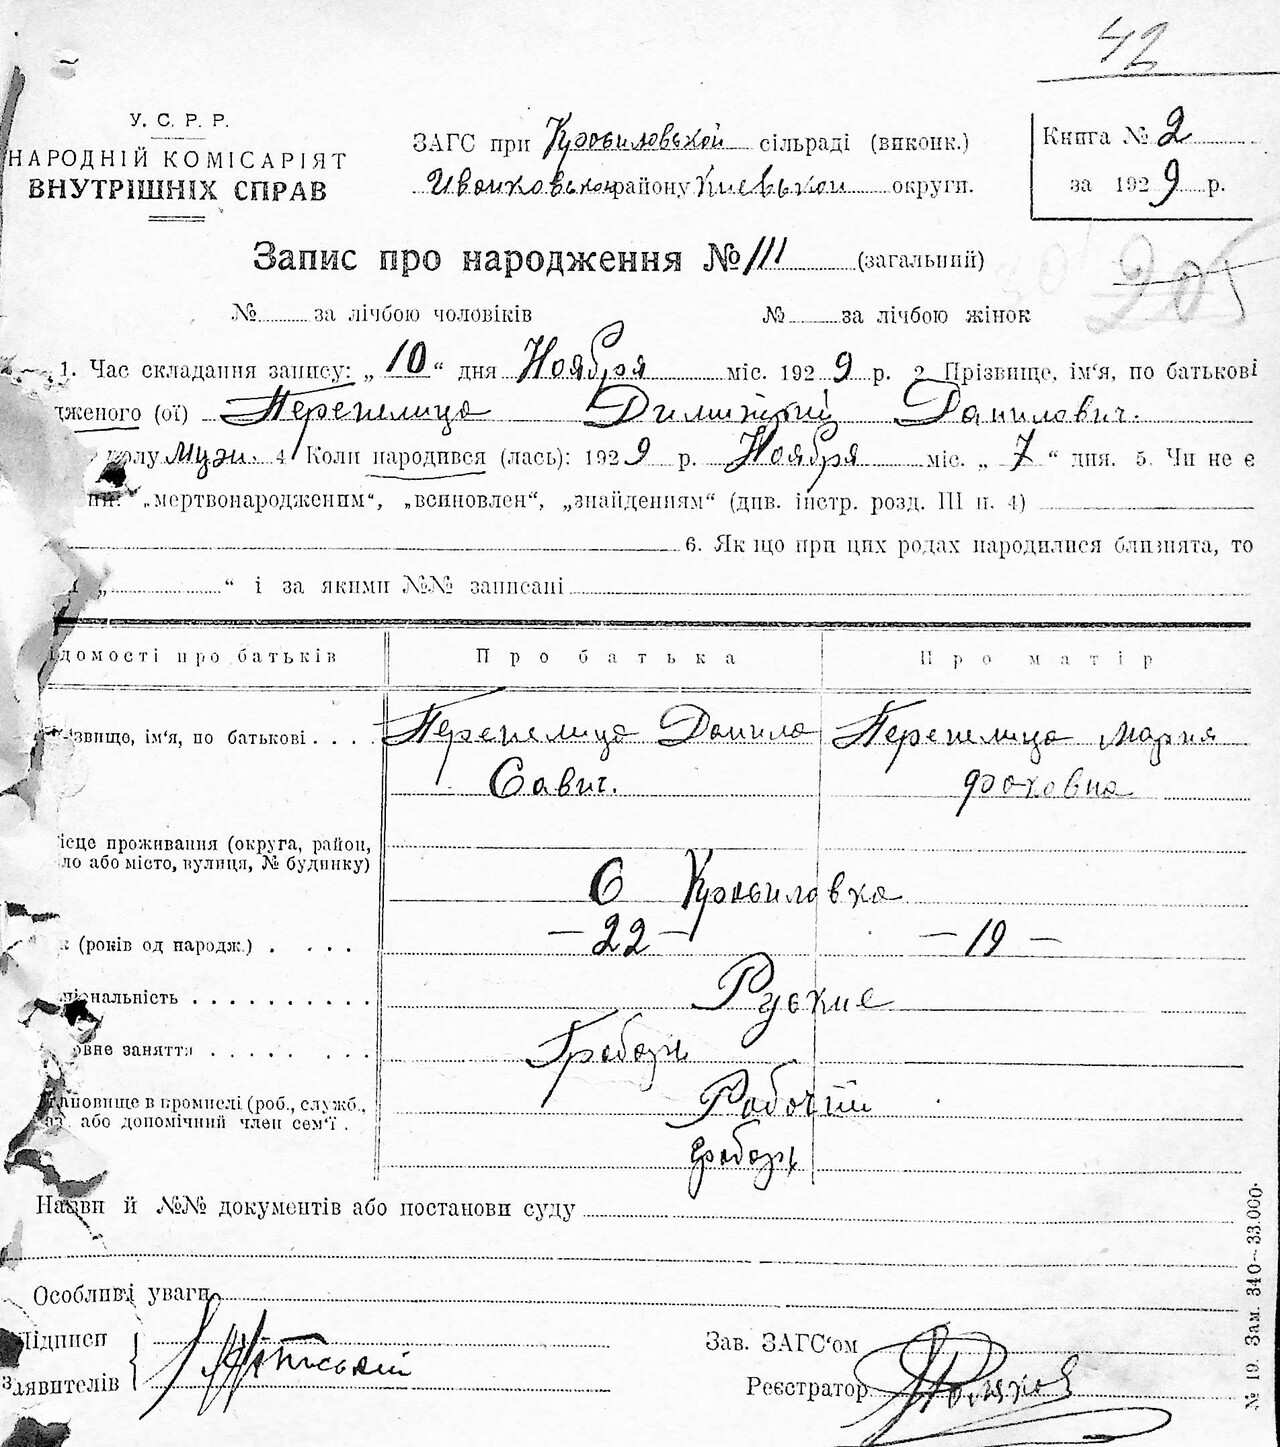 42
У. С. Р. Р.
НАРОДНІЙ КОМІСАРІЯТ
ВНУТРІШНІХ СПРАВ
ЗАГС при сільраді (виконк.)
району Киевской округи.
Книга № 2
за 1929 р.
Запис про народження № 111 (загальний)
205
№ за лічбою чоловіків № за лічбою жінок
1. Час складання запису: „10“ дня Ноября міс. 1929 р. 2. Прізвище, ім'я, по батькові
дженого (ої) Перепелица Димитрий Данилович.
полу Муж. 4 Коли народився (лась): 1929 р. Ноября міс. „7“ дня. 5. Чи не є
„мертвонародженим“, „всиновлен“, „знайденням“ (див. інстр. розд. III п. 4)
6. Як що при цих родах народилися близнята, то
„ “ і за якими №№ записані
ідомості про батьків Про батька Про матір
ізвище, ім'я, по батькові . . . . Перепелица Данило Перепелица Мария
Савич. Фоховна
ісце проживання (округа, район,
ло або місто, вулиця, № будинку)
С
(років од народж.) . . . . — 22 — — 19 —
іональність . . . . . . . . . . Руские
овне заняття . . . . . . . .
тановище в промислі (роб., служб., Рабочий
або допомічний член сем'ї .
Назви й №№ документів або постанови суду
Особливі уваги
Підписи
Заявителів
Зав. ЗАГС'ом
Реєстратор
№ 19. Зам. 340—33.000.